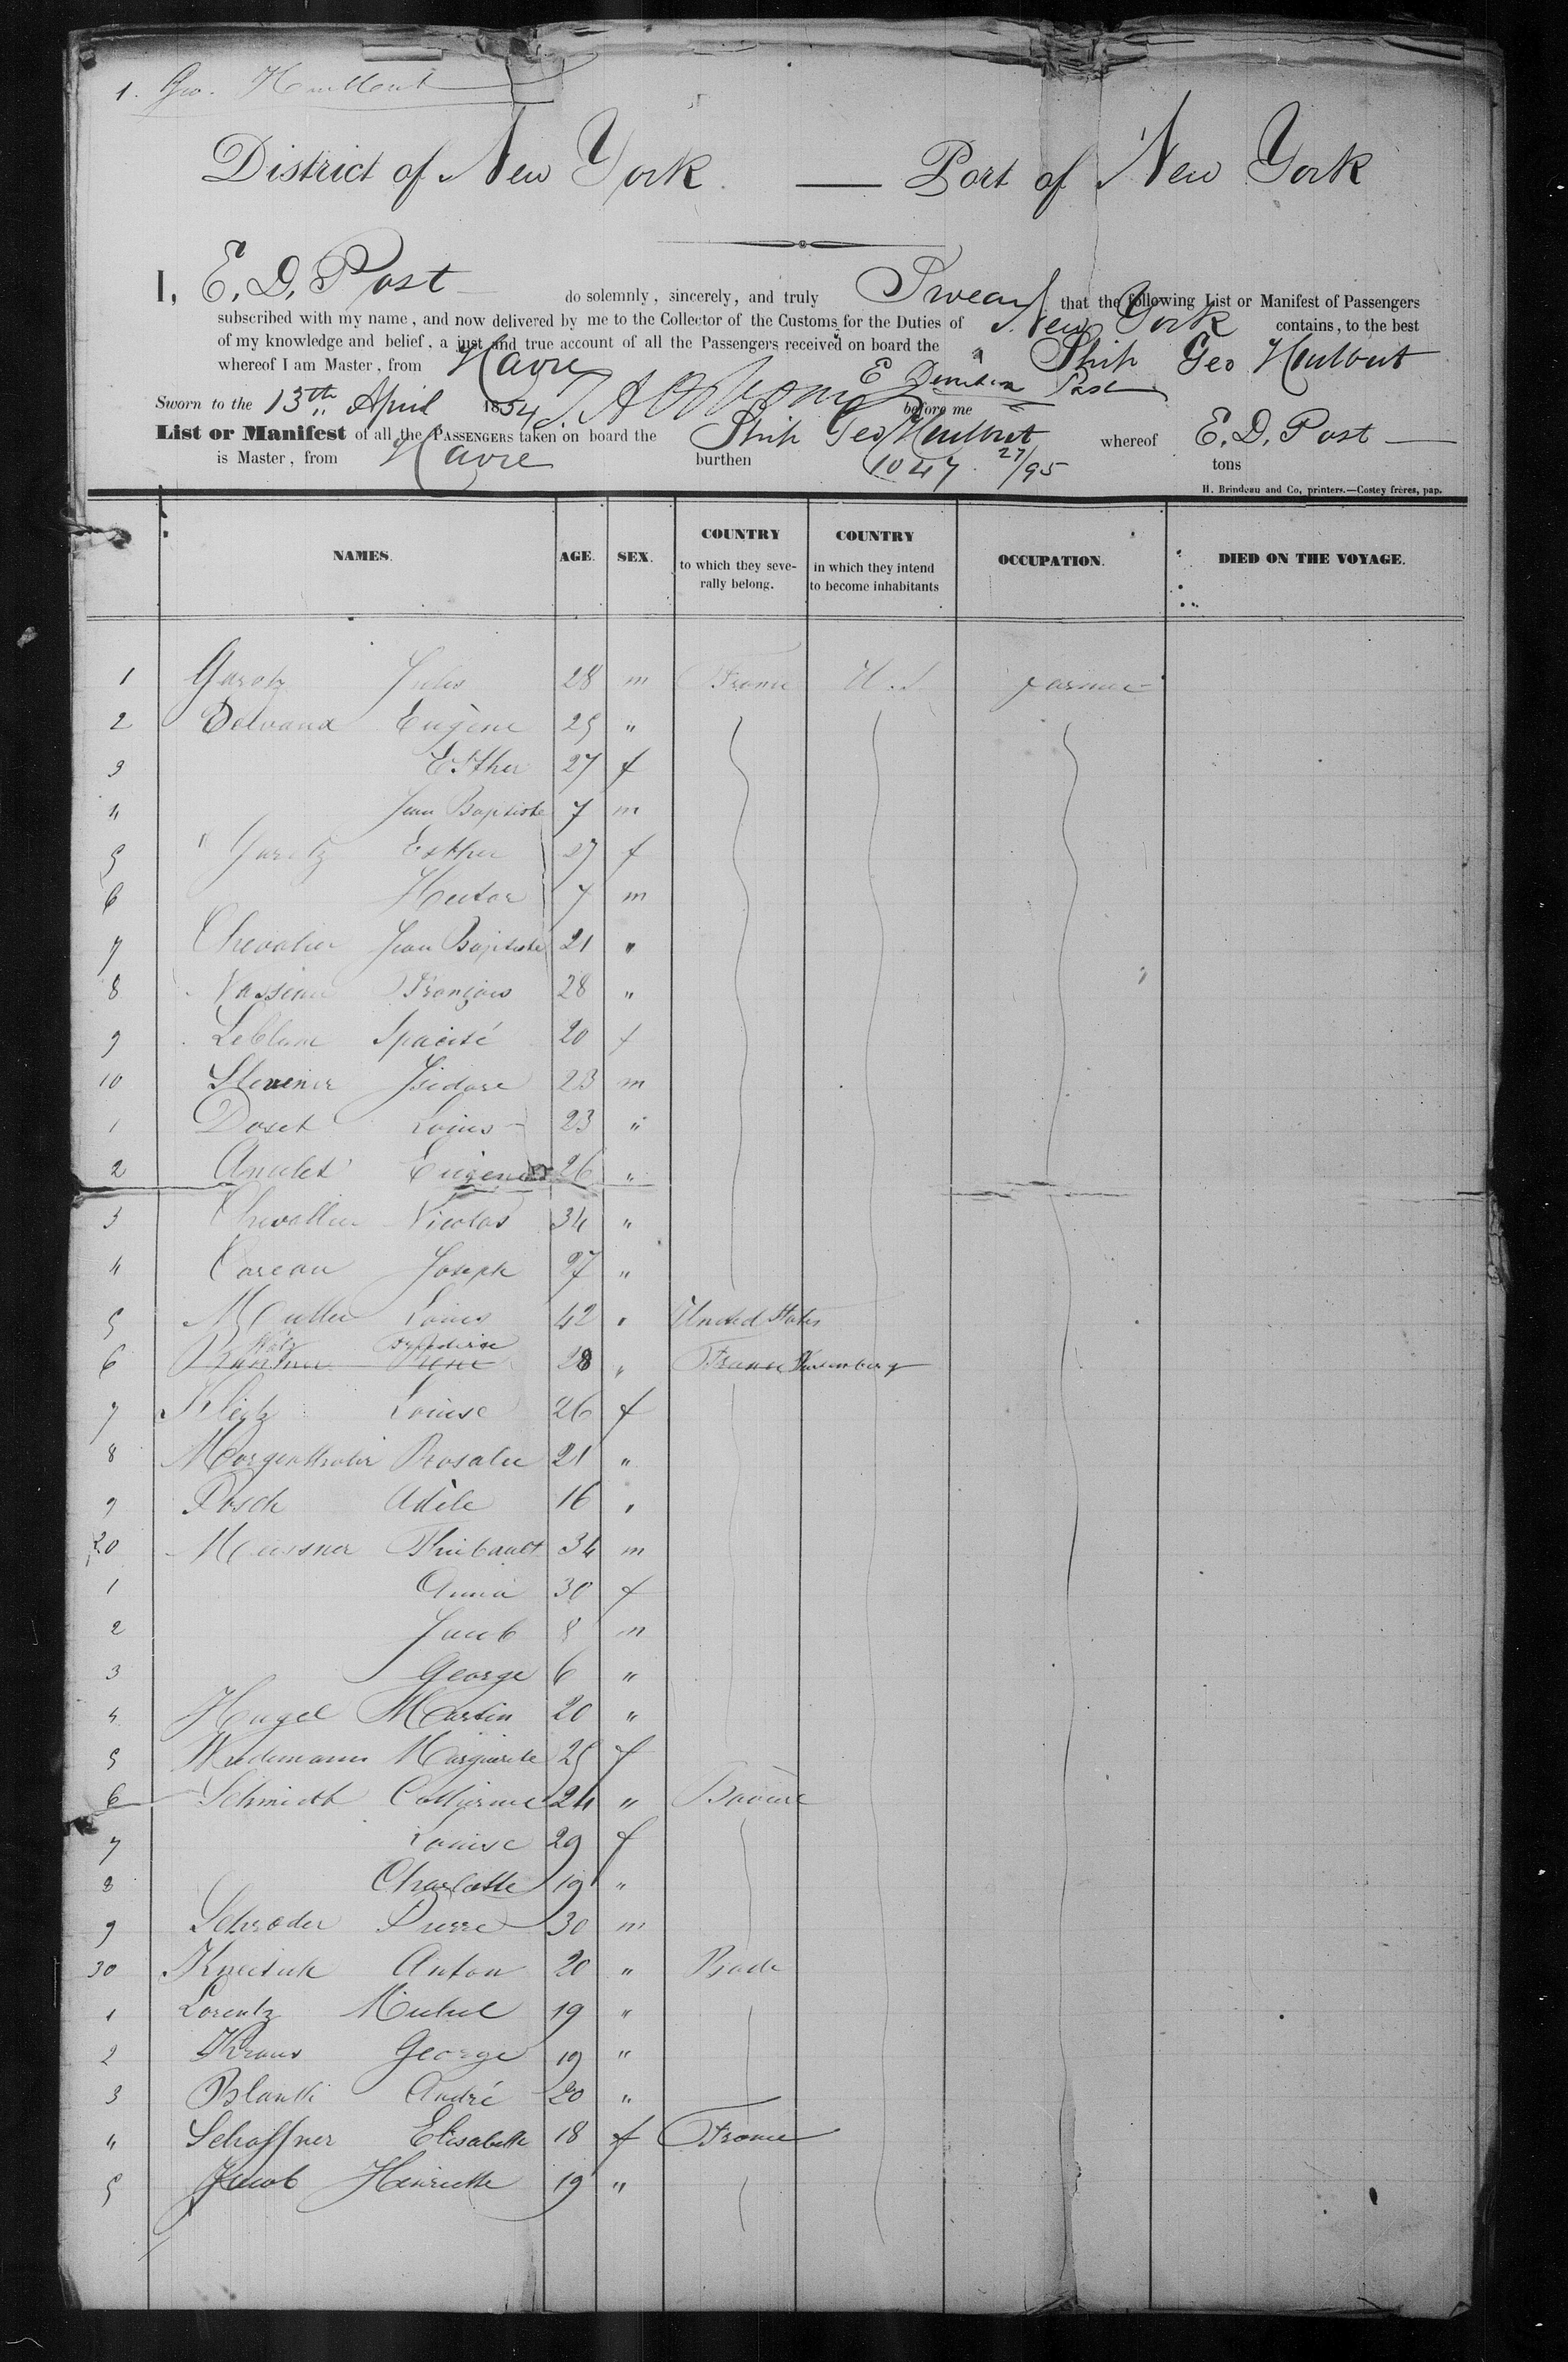 1. Geo. Hurlbut
District of New York — Port of New York
I, E. D. Post do solemnly, sincerely, and truly Swear that the following List or Manifest of Passengers
subscribed with my name, and now delivered by me to the Collector of the Customs for the Duties of New York contains, to the best
of my knowledge and belief, a just and true account of all the Passengers received on board the Ship Geo Hurlbut
whereof I am Master, from Havre E Post
Sworn to the 13th April 1854 before me
List or Manifest of all the PASSENGERS taken on board the Ship Geo Hurlbut whereof E. D. Post
is Master, from Havre burthen 1047 27/95 tons
H. Brindeau and Co, printers.—Costey frères, pap.
NAMES. AGE. SEX. COUNTRY to which they severally belong. COUNTRY in which they intend to become inhabitants OCCUPATION. DIED ON THE VOYAGE.
1 Garotz Jules 28 m France U.S farmer
2 Eugène 25 "
3 Esther 27 f
4 Jean Baptiste 7 m
5 " Garotz Esther 27 f
6 Hector 7 m
7 Chevalier Jean Baptiste 21 "
8 François 28 "
9 20 f
10 Isidore 23 m
1 Doset Louis 23 "
2 Eugene 26 "
3 Chevallier Nicolas 34 "
4 Careau Joseph 27 "
5 Muller Louis 42 " United States
6 28 " France
7 Louise 26 f
8 Morgenthaler Rosalie 21 "
9 Posch Adèle 16 "
20 Meissner Thiebault 34 m
1 Anna 30 f
2 Jacob 8 m
3 George 6 "
4 Hugel Martin 20 "
5 Wiedemann Marguerite 25 f
6 Schmidt Catherine 24 " Bavière
7 Louise 29 f
8 Charlotte 19 "
9 Schroder Pierre 30 m
30 Anton 20 " Bade
1 Lorentz Michel 19 "
2 Kraus George 19 "
3 André 20 "
4 Schaffner Elisabeth 18 f France
5 Jacob Henriette 19 "